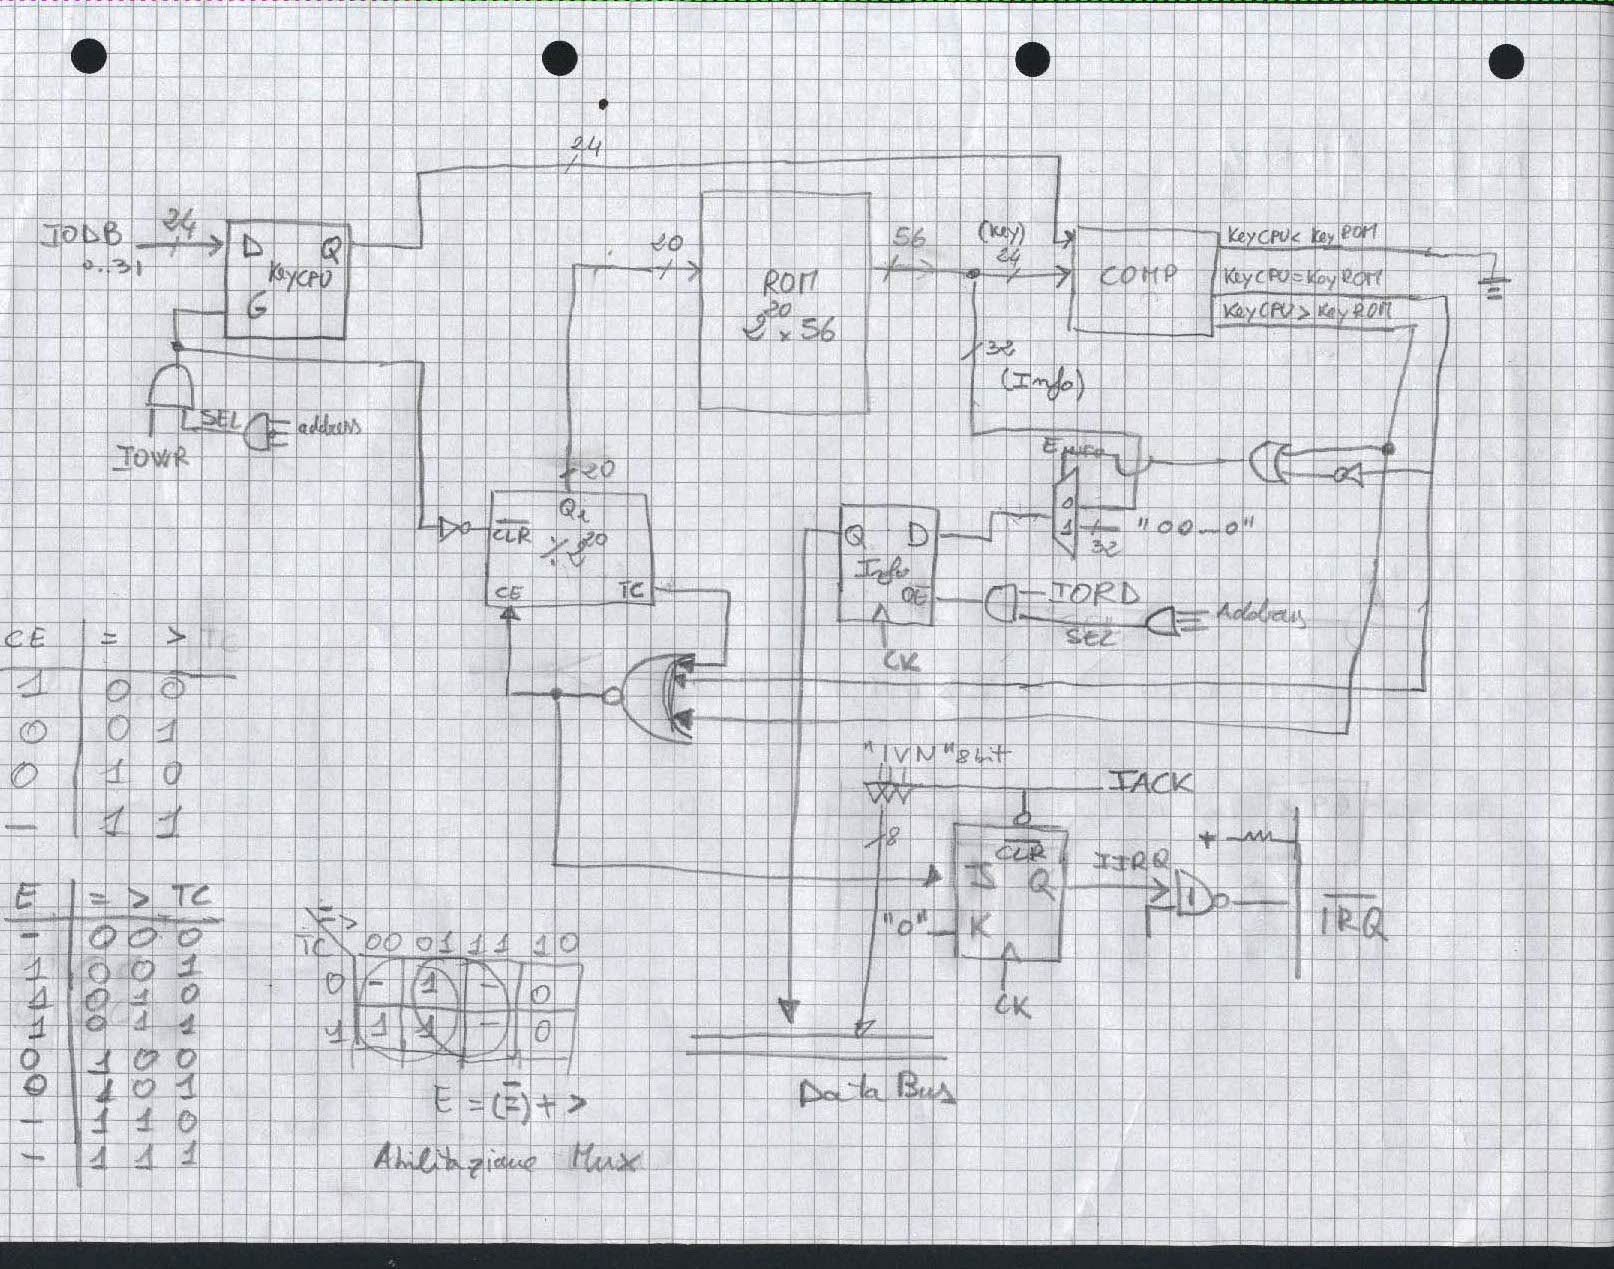 24
IODB 24
0..31
D Q
KeyCPU
G
SEL address
IOWR
20
ROM
2^20 x 56
56
(Key)
24
32
(Info)
COMP
KeyCPU< KeyROM
KeyCPU=KeyROM
KeyCPU> KeyROM
20
Qi
CLR
2^20
CE TC
E
0
1 "00...0"
32
Q D
Info
OE
CK
IORD
SEL Address
CE = > TC
1 0 0
0 0 1
0 1 0
- 1 1
"IVN" 8bit
IACK
8
CLR
J Q
"0" K
CK
IIRQ
+
IRQ
Data Bus
E = > TC
- 0 0 0
1 0 0 1
1 0 1 0
1 0 1 1
0 1 0 0
0 1 0 1
- 1 1 0
- 1 1 1
= >
TC 00 01 11 10
0 - 1 - 0
1 1 1 - 0
E = (=) + >
Abilitazione Mux